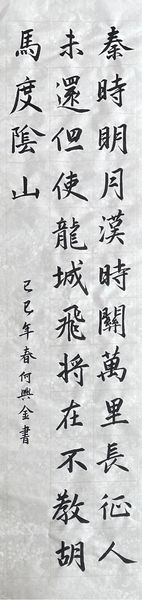 秦時明月漢時關萬里長征人
未還但使龍城飛将在不教胡
馬度陰山
己巳年春何興金書